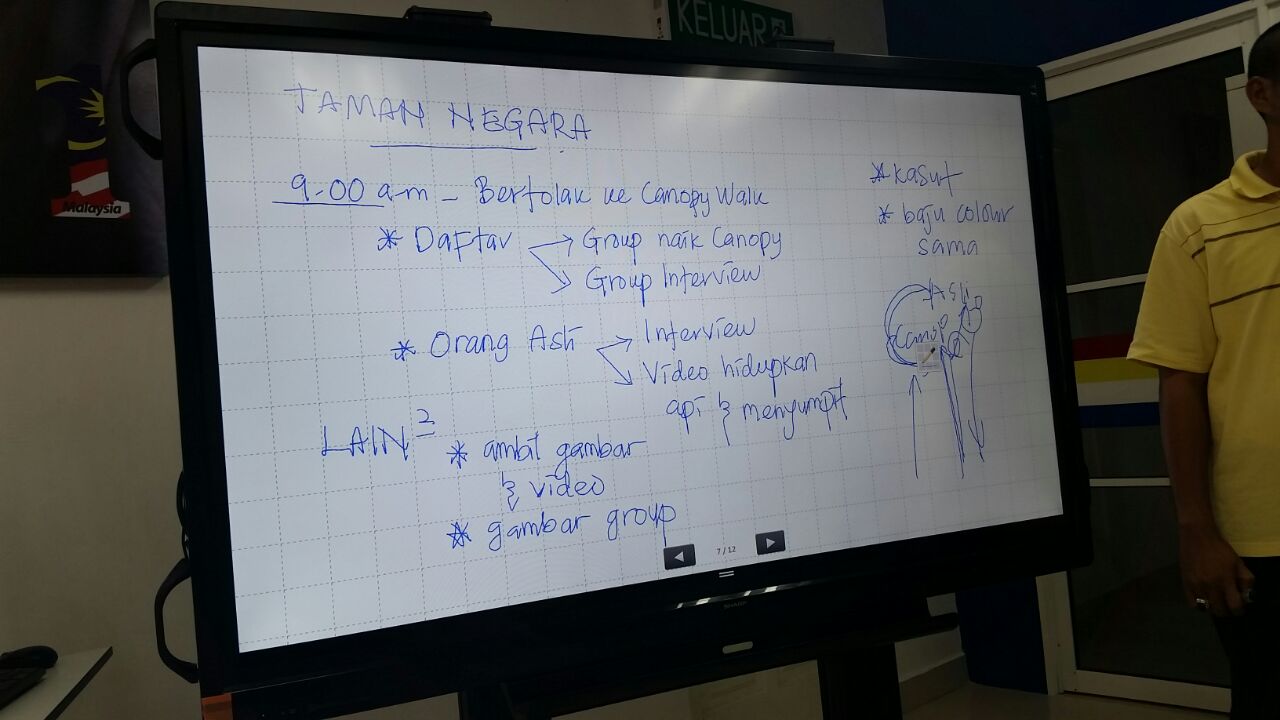 KELUAR
Malaysia
TAMAN NEGARA
9.00 a.m - Bertolak ke Canopy Walk
* Daftar → Group naik Canopy
→ Group Interview
* Orang Asli → Interview
→ Video hidupkan
api & menyumpit
LAIN²
* ambil gambar
& video
* gambar group
* kasut
* baju colour
sama
Asli
Canopy
7 / 12
SHARP